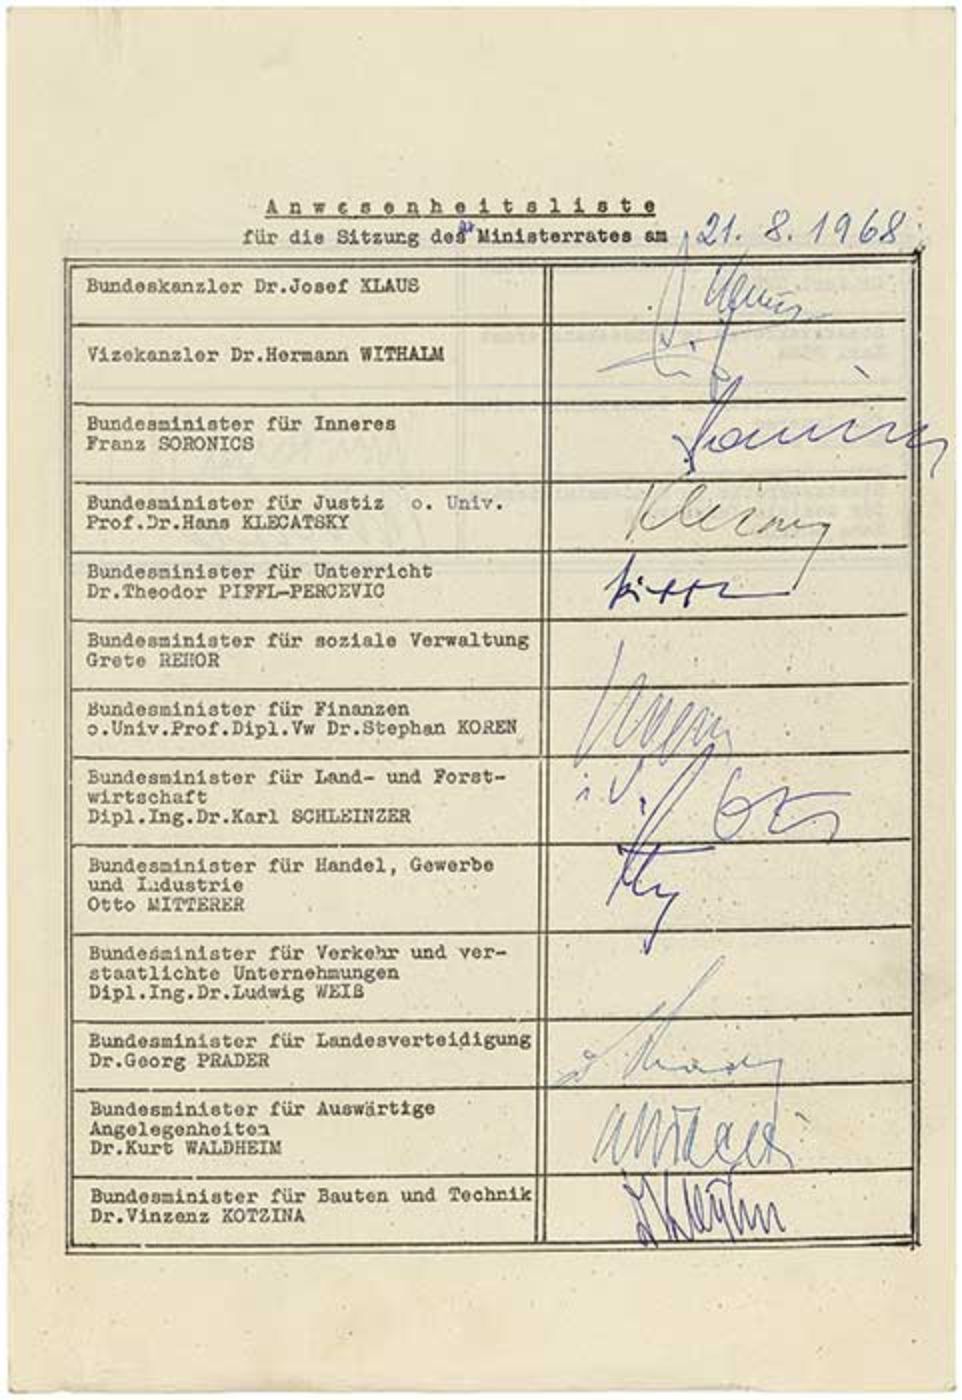 Anwesenheitsliste
für die Sitzung des Ministerrates am 21. 8. 1968
Bundeskanzler Dr.Josef KLAUS
Klaus
Vizekanzler Dr.Hermann WITHALM
Bundesminister für Inneres
Franz SORONICS
Bundesminister für Justiz o. Univ.
Prof.Dr.Hans KLECATSKY
Bundesminister für Unterricht
Dr.Theodor PIFFL-PERCEVIC
Piffl
Bundesminister für soziale Verwaltung
Grete REHOR
Bundesminister für Finanzen
o.Univ.Prof.Dipl.Vw Dr.Stephan KOREN
Bundesminister für Land- und Forst-
wirtschaft
Dipl.Ing.Dr.Karl SCHLEINZER
i.V.
Bundesminister für Handel, Gewerbe
und Industrie
Otto MITTERER
Bundesminister für Verkehr und ver-
staatlichte Unternehmungen
Dipl.Ing.Dr.Ludwig WEIß
Bundesminister für Landesverteidigung
Dr.Georg PRADER
Bundesminister für Auswärtige
Angelegenheiten
Dr.Kurt WALDHEIM
Bundesminister für Bauten und Technik
Dr.Vinzenz KOTZINA